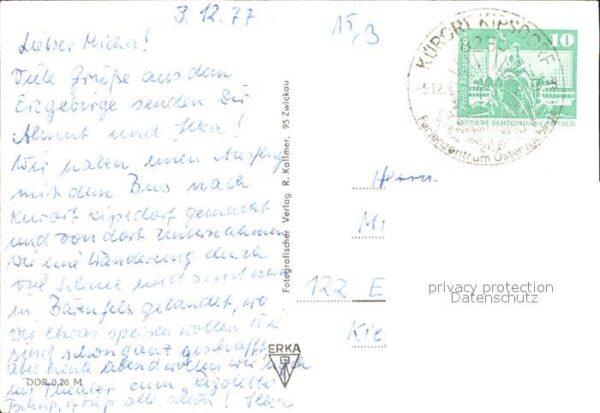 3.12.77
15,3
Lieber Micha!
Viele Grüße aus dem
Erzgebirge senden Dir
Almut und Ilka!
Wir haben einen Ausflug
mit dem Bus nach
Kurort Kipsdorf gemacht
und von dort unternahmen
wir eine Wanderung durch
viel Schnee und sind nun
in Bärenfels gelandet, wo
wir etwas speisen wollen. Wir
sind schon ganz geschafft,
aber heute abend wollen wir noch
ins Theater zum "Rigoletto"
Tschüß, grüß alle schön! Ilka
DDR 0,20 M
Fotografischer Verlag R. Kallmer, 95 Zwickau
ERKA
KURORT KIPSDORF
10
DEUTSCHE DEMOKRATISCHE
Ferienzentrum Osterzgebirge
Herrn
Mi
122 E
Kie
privacy protection
Datenschutz